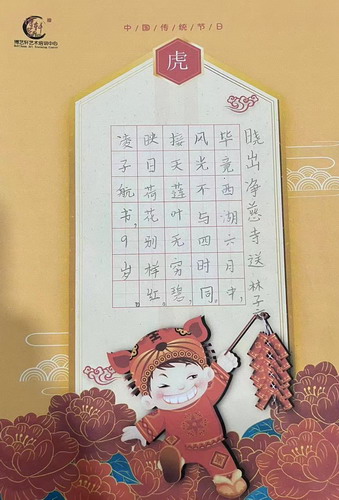 中/国/传/统/节/日
虎
晓出净慈寺送林子
毕竟西湖六月中,
风光不与四时同。
接天莲叶无穷碧,
映日荷花别样红。
凌子航书,9岁